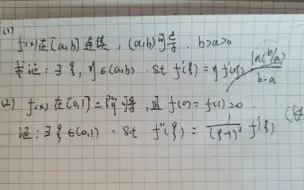 (1)
f(x)在[a,b]连续, (a,b)可导. b>a>0
求证: ∃ξ, η∈(a,b) st f'(ξ)=η f'(η) ln(b/a)/(b-a)
(2) f(x)在[0,1]二阶可导, 且 f(0)=f(1)=0
证: ∃ξ∈(0,1) st f''(ξ) = 1/(ξ-1)² f'(ξ)